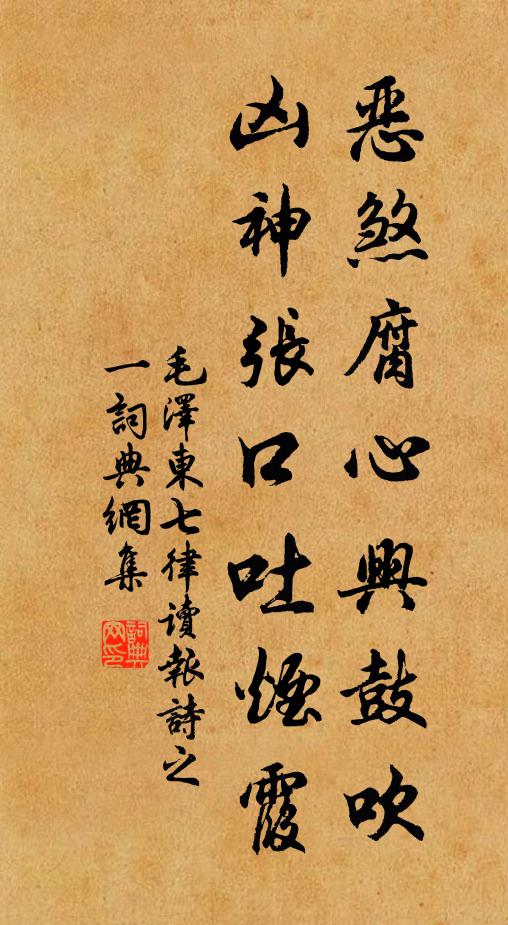 惡煞腐心興鼓吹
凶神張口吐煙霞
毛澤東七律讀報詩之
一詞典網集
詞典
网印